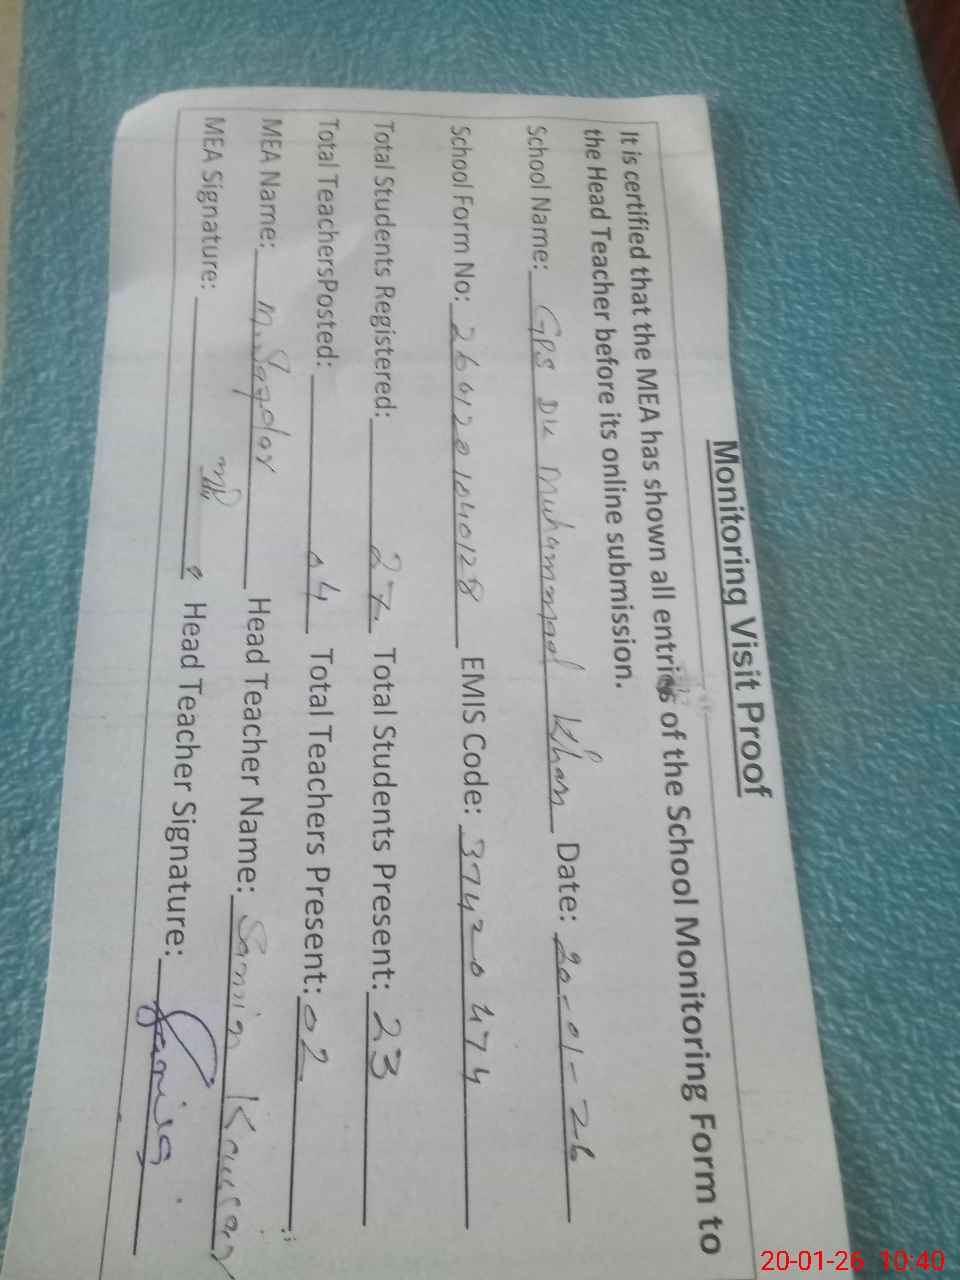 Monitoring Visit Proof
It is certified that the MEA has shown all entries of the School Monitoring Form to
the Head Teacher before its online submission.
School Name: GPS DK Muhammad Khan Date: 20-01-26
School Form No: EMIS Code: 37420474
Total Students Registered: 27 Total Students Present: 23
Total TeachersPosted: 04 Total Teachers Present: 02
MEA Name: M. Safdar Head Teacher Name: Samin Kausar
MEA Signature: Head Teacher Signature:
20-01-26 10:40